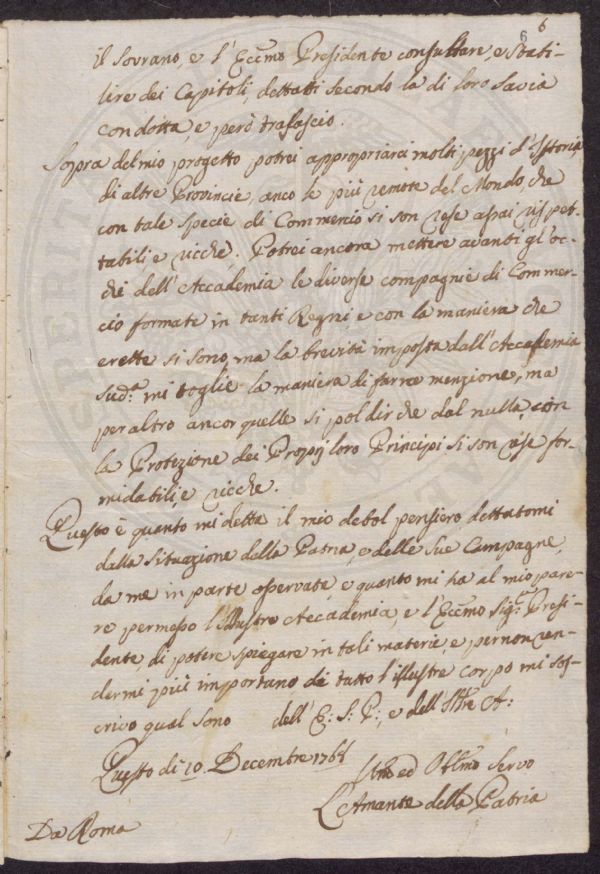 6 6
il Sovrano, e l'Eccmo Presidente consultare, e Stabi-
lire dei Capitoli, dettatti secondo la di loro Savia
condotta, e però tralascio.
Sopra del mio progetto potrei appropriarci molti pezzi d'Istoria
di altre Provincie, anco le più remote del Mondo, che
con tale specie di Commercio si son rese assai rispet-
tabili e ricche. Potrei ancora mettere avanti gl'oc-
chi dell'Accademia le diverse compagnie di Commer-
cio formate in tanti Regni e con la maniera che
erette si sono, ma la brevità imposta dall'Accademia
sud.a mi toglie la maniera di farne menzione, ma
per altro ancor quelle si pol dir che dal nulla, con
la Protezione dei Proprj loro Principi si son rese for-
midabili, e ricche.
Questo è quanto mi detta il mio debol pensiero dettatomi
dalla Situazione della Patria, e delle sue Campagne,
da me in parte osservate, e quanto mi ha al mio pare-
re permesso l'Illustre Accademia, e l'Eccmo Sig.r Presi-
dente, di potere spiegare in tali materie, e per non ren-
dermi più importano de tutto l'illustre corpo mi sos-
crivo qual sono dell'E: S: P:, e dell'Iltre A:
Questo di 10 Decembre 1764
Umo ed Obblmo Servo
L'Amante della Patria
Da Roma